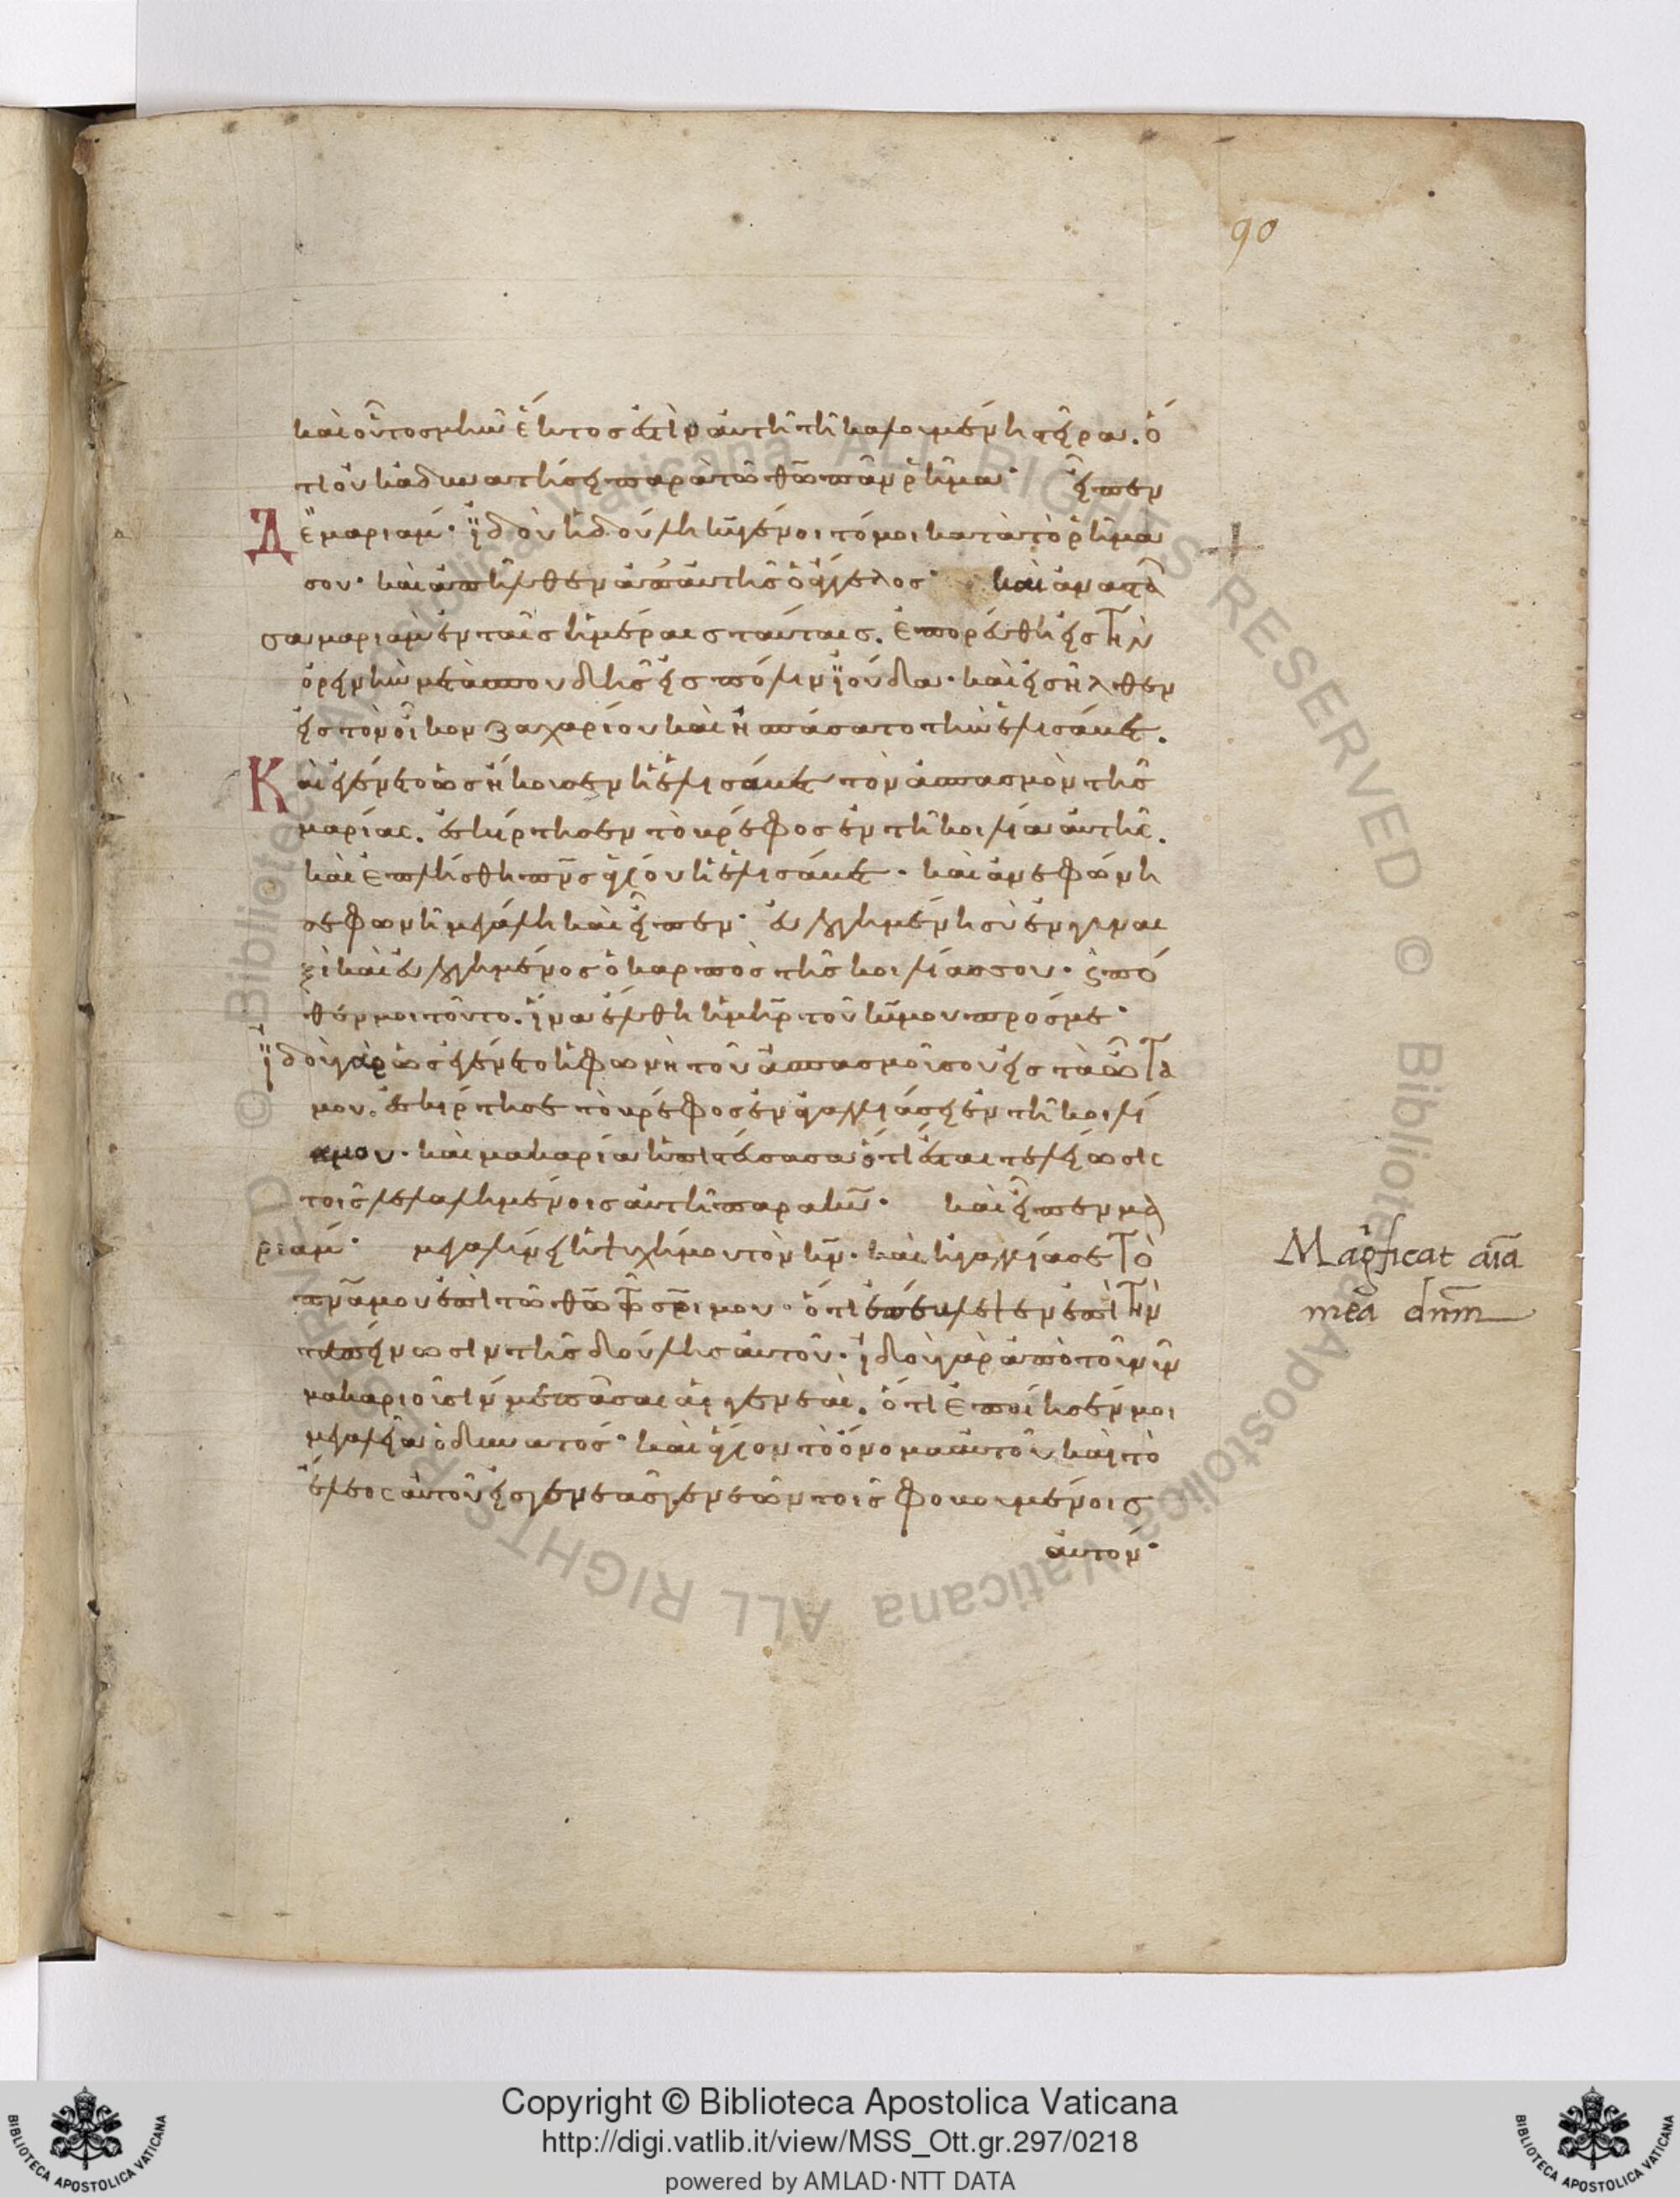 90
καὶ οὗτος μὴν ἕκτος ἐστὶν αὐτῆ τῆ καλουμένη στείρα. ὅ
τι οὐκ ἀδυνατήσει παρὰ τῶ θῶ πᾶν ῥῆμα· εἶπεν
Δὲ μαριάμ· ἰδοὺ ἡ δούλη κυ γένοιτό μοι κατὰ τὸ ῥῆμα
σου· καὶ ἀπῆλθεν ἀπ' αὐτῆς ὁ ἄγγελος· καὶ ἀναστᾶ
σα μαριὰμ ἐν ταῖς ἡμέραις ταύταις. ἐπορεύθη εἰς τὴν
ὀρεινὴν μετὰ σπουδῆς εἰς πόλιν ἰούδα· καὶ εἰσῆλθεν
εἰς τὸν οἶκον ζαχαρίου καὶ ἠσπάσατο τὴν ἐλισάβετ.
Καὶ ἐγένετο ὡς ἤκουσεν ἡ ἐλισάβετ τὸν ἀσπασμὸν τῆς
μαρίας. ἐσκίρτησεν τὸ βρέφος ἐν τῆ κοιλία αὐτῆς.
καὶ ἐπλήσθη πνς ἁγίου ἡ ἐλισάβετ· καὶ ἀνεφώνη
σε φωνῆ μεγάλη καὶ εἶπεν· εὐλογημένη σὺ ἐν γυναι
ξὶ καὶ εὐλογημένος ὁ καρπὸς τῆς κοιλίας σου· καὶ πό
θεν μοι τοῦτο. ἵνα ἔλθη ἡ μηρ τοῦ κυ μου πρός με·
ἰδοὺ γὰρ ὡς ἐγένετο ἡ φωνὴ τοῦ ἀσπασμοῦ σου εἰς τὰ ὦτά
μου. ἐσκίρτησε τὸ βρέφος ἐν ἀγαλλιάσει ἐν τῆ κοιλί
α μου· καὶ μακαρία ἡ πιστεύσασα ὅτι ἔσται τελείωσις
τοῖς λελαλημένοις αὐτῆ παρὰ κυ· καὶ εἶπεν μα
ριάμ· μεγαλύνει ἡ ψυχή μου τὸν κν· καὶ ἠγαλλίασε τὸ
πνα μου ἐπὶ τῶ θῶ τῶ σρι μου· ὅτι ἐπέβλεψεν ἐπὶ τὴν
ταπείνωσιν τῆς δούλης αὐτοῦ· ἰδοὺ γὰρ ἀπὸ τοῦ νῦν
μακαριοῦσίν με πᾶσαι αἱ γενεαί. ὅτι ἐποίησέν μοι
μεγαλεῖα ὁ δυνατός· καὶ ἅγιον τὸ ὄνομα αὐτοῦ καὶ τὸ
ἔλεος αὐτοῦ εἰς γενεὰς γενεῶν τοῖς φοβουμένοις
αὐτόν·
Magficat aia
mea dnm
Copyright © Biblioteca Apostolica Vaticana
http://digi.vatlib.it/view/MSS_Ott.gr.297/0218
powered by AMLAD·NTT DATA